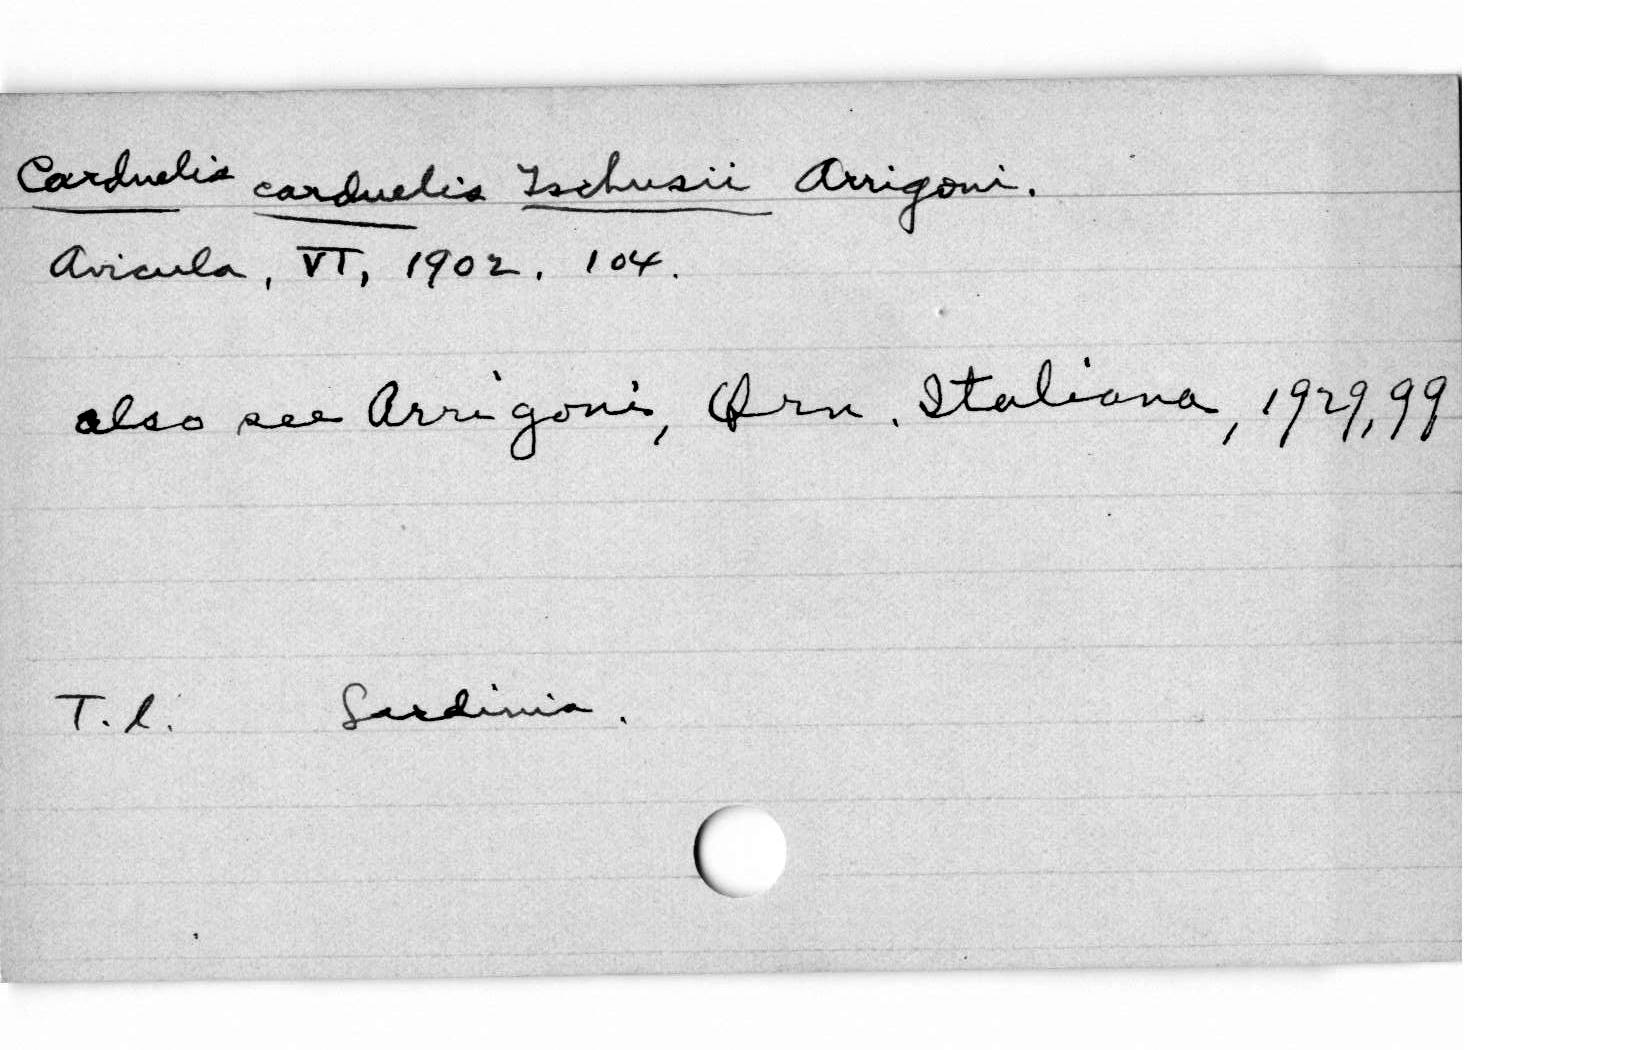 Carduelis carduelis Tschusii Arrigoni.
Avicula, VI, 1902. 104.
also see Arrigoni, Orn. Italiana, 1929, 99
T. l. Sardinia.